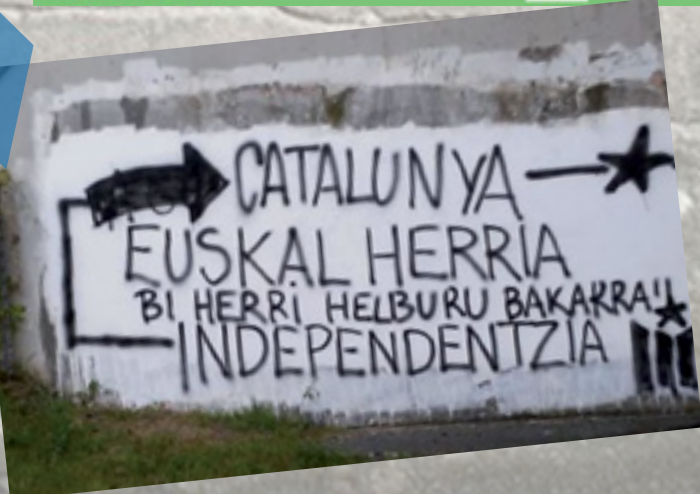 CATALUNYA
EUSKAL HERRIA
BI HERRI HELBURU BAKARRA!
INDEPENDENTZIA